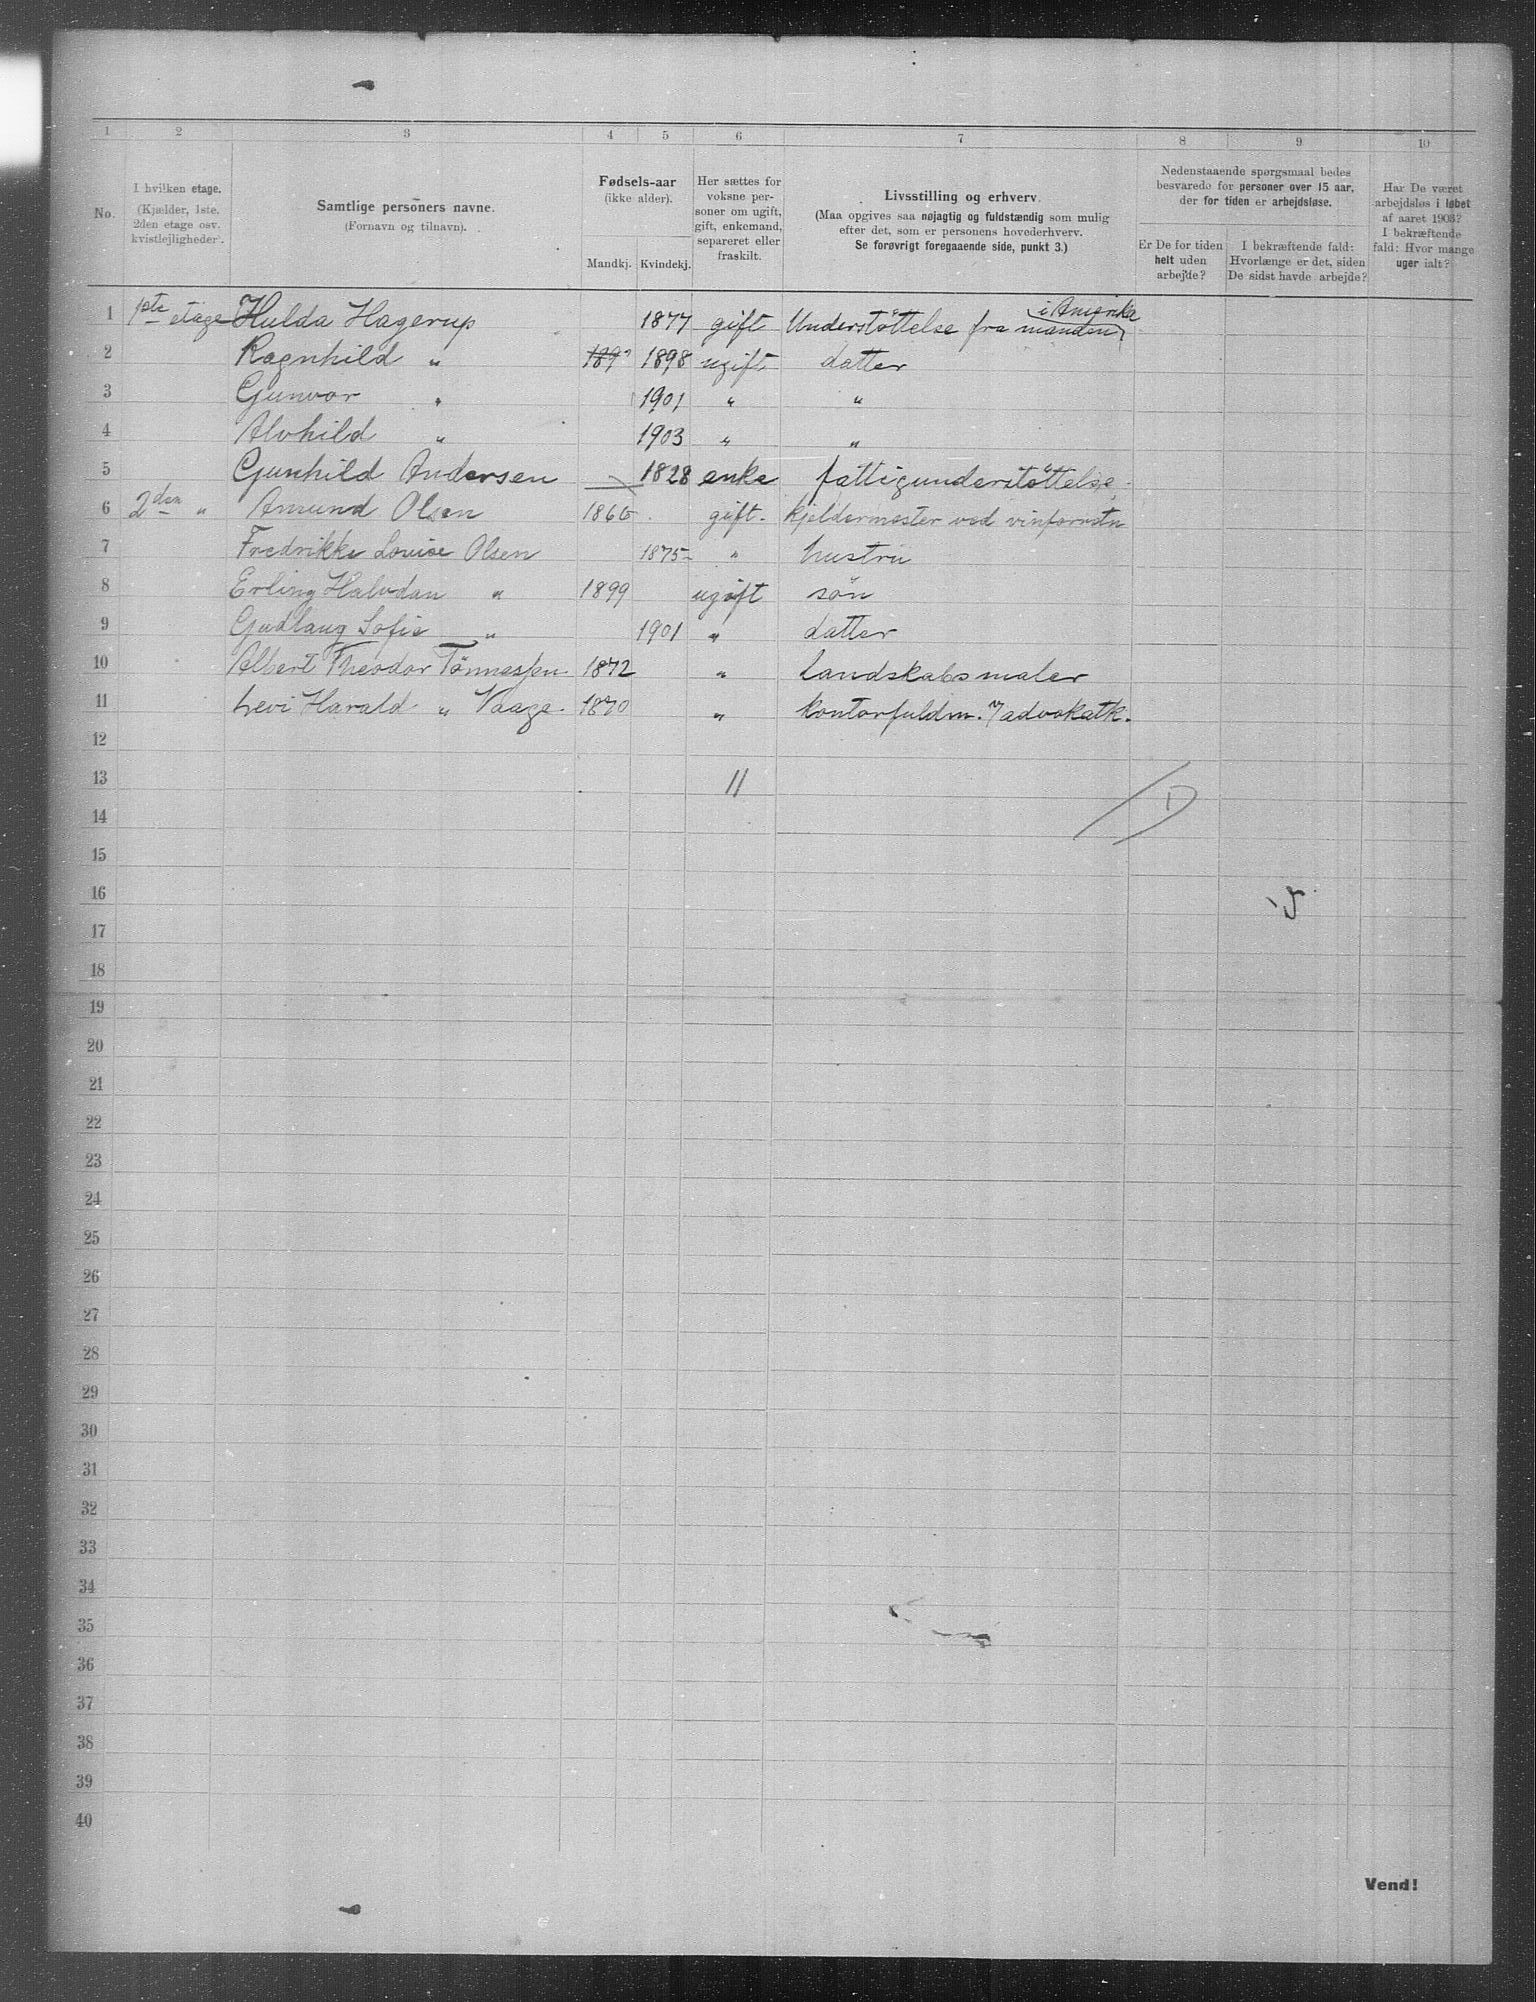 1 2 3 4 5 6 7 8 9 10
No.
I hvilken etage.
(Kjælder, 1ste.
2den etage osv.
kvistlejligheder).
Samtlige personers navne.
(Fornavn og tilnavn).
Fødsels-aar
(ikke alder).
Mandkj. Kvindekj.
Her sættes for
voksne per-
soner om ugift,
gift, enkemand,
separeret eller
fraskilt.
Livsstilling og erhverv.
(Maa opgives saa nøjagtig og fuldstændig som mulig
efter det, som er personens hovederhverv.
Se forøvrigt foregaaende side, punkt 3.)
Nedenstaaende spørgsmaal bedes
besvarede for personer over 15 aar,
der for tiden er arbejdsløse.
Er De for tiden
helt uden
arbejde?
I bekræftende fald:
Hvorlænge er det, siden
De sidst havde arbejde?
Har De været
arbejdsløs i løbet
af aaret 1903?
I bekræftende
fald: Hvor mange
uger ialt?
1 1ste etage Hulda Hagerup 1877 gift Understöttelse fra manden i Amerika
2 Ragnhild " 189 1898 ugift datter
3 Gunvor " 1901 " "
4 Alvhild " 1903 " "
5 Gunhild Andersen 1828 enke fattigunderstöttelse.
6 2den " Amund Olsen 1866 gift. kjeldermester ved vinforretn
7 Fredrikke Louise Olsen 1875 " hustru
8 Erling Halvdan " 1899 ugift sön
9 Gudlaug Sofie " 1901 " datter
10 Albert Theodor Tönnessen 1872 " landskabsmaler
11 Levi Harald " Vaage. 1870 " kontorfuldm. / advokatk.
12
13 11
14
15
16
17
18
19
20
21
22
23
24
25
26
27
28
29
30
31
32
33
34
35
36
37
38
39
40
Vend!